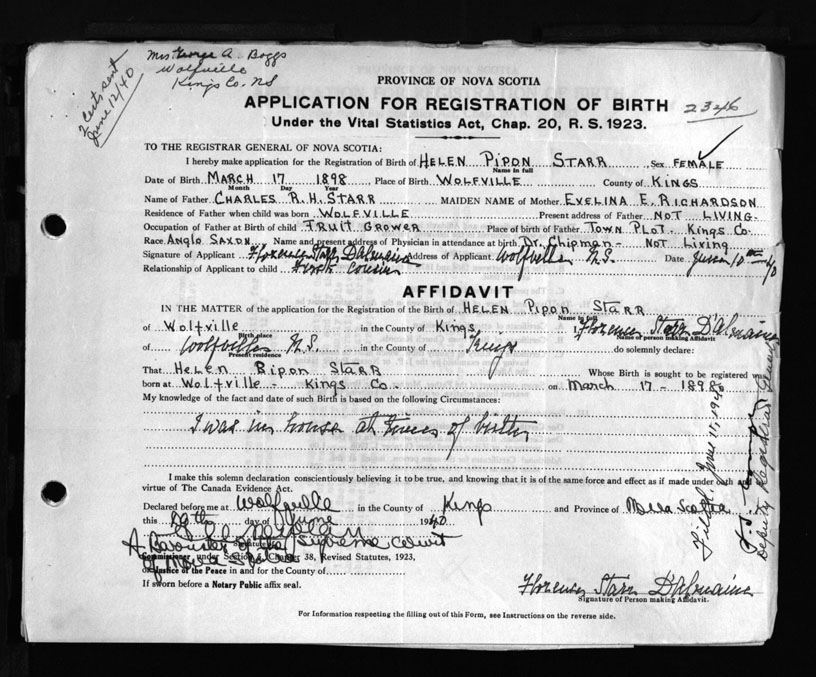 Mrs. George A. Boggs
Wolfville
Kings Co. NS
2 Certs sent
June 12/40
PROVINCE OF NOVA SCOTIA
APPLICATION FOR REGISTRATION OF BIRTH
2346
Under the Vital Statistics Act, Chap. 20, R. S. 1923.
TO THE REGISTRAR GENERAL OF NOVA SCOTIA:
I hereby make application for the Registration of Birth of HELEN PIPON STARR Sex FEMALE
Name in full
Date of Birth MARCH 17 1898 Place of Birth WOLFVILLE County of KINGS
Month Day Year
Name of Father CHARLES R. H. STARR MAIDEN NAME of Mother EVELINA E. RICHARDSON
Residence of Father when child was born WOLFVILLE Present address of Father NOT LIVING.
Occupation of Father at Birth of child FRUIT GROWER Place of birth of Father TOWN PLOT. Kings Co.
Race Anglo Saxon. Name and present address of Physician in attendance at birth Dr. Chipman - NOT Living
Signature of Applicant Florence Starr D'Almaine Address of Applicant Wolfville N.S. Date June 10th 40
Relationship of Applicant to child First Cousin
AFFIDAVIT
IN THE MATTER of the application for the Registration of the Birth of HELEN Pipon Starr
Name in full
of Wolfville in the County of Kings, I, Florence Starr D'Almaine
Birth place Name of person making Affidavit
of Wolfville N.S. in the County of Kings do solemnly declare:
Present residence
That Helen Pipon Starr Whose Birth is sought to be registered was
born at Wolfville - Kings Co. on March 17 - 1898
My knowledge of the fact and date of such Birth is based on the following Circumstances:
I was in house at time of birth
I make this solemn declaration conscientiously believing it to be true, and knowing that it is of the same force and effect as if made under oath and
virtue of The Canada Evidence Act.
Declared before me at Wolfville in the County of Kings and Province of Nova Scotia
this 10th day of June 1940
A Barrister of the Supreme Court
of Nova Scotia
Commissioner under Section 6, Chapter 38, Revised Statutes, 1923,
or Justice of the Peace in and for the County of
If sworn before a Notary Public affix seal.
Florence Starr D'Almaine
Signature of Person making Affidavit.
For Information respecting the filling out of this Form, see Instructions on the reverse side.
Filed June 11, 1940
Deputy Registrar General